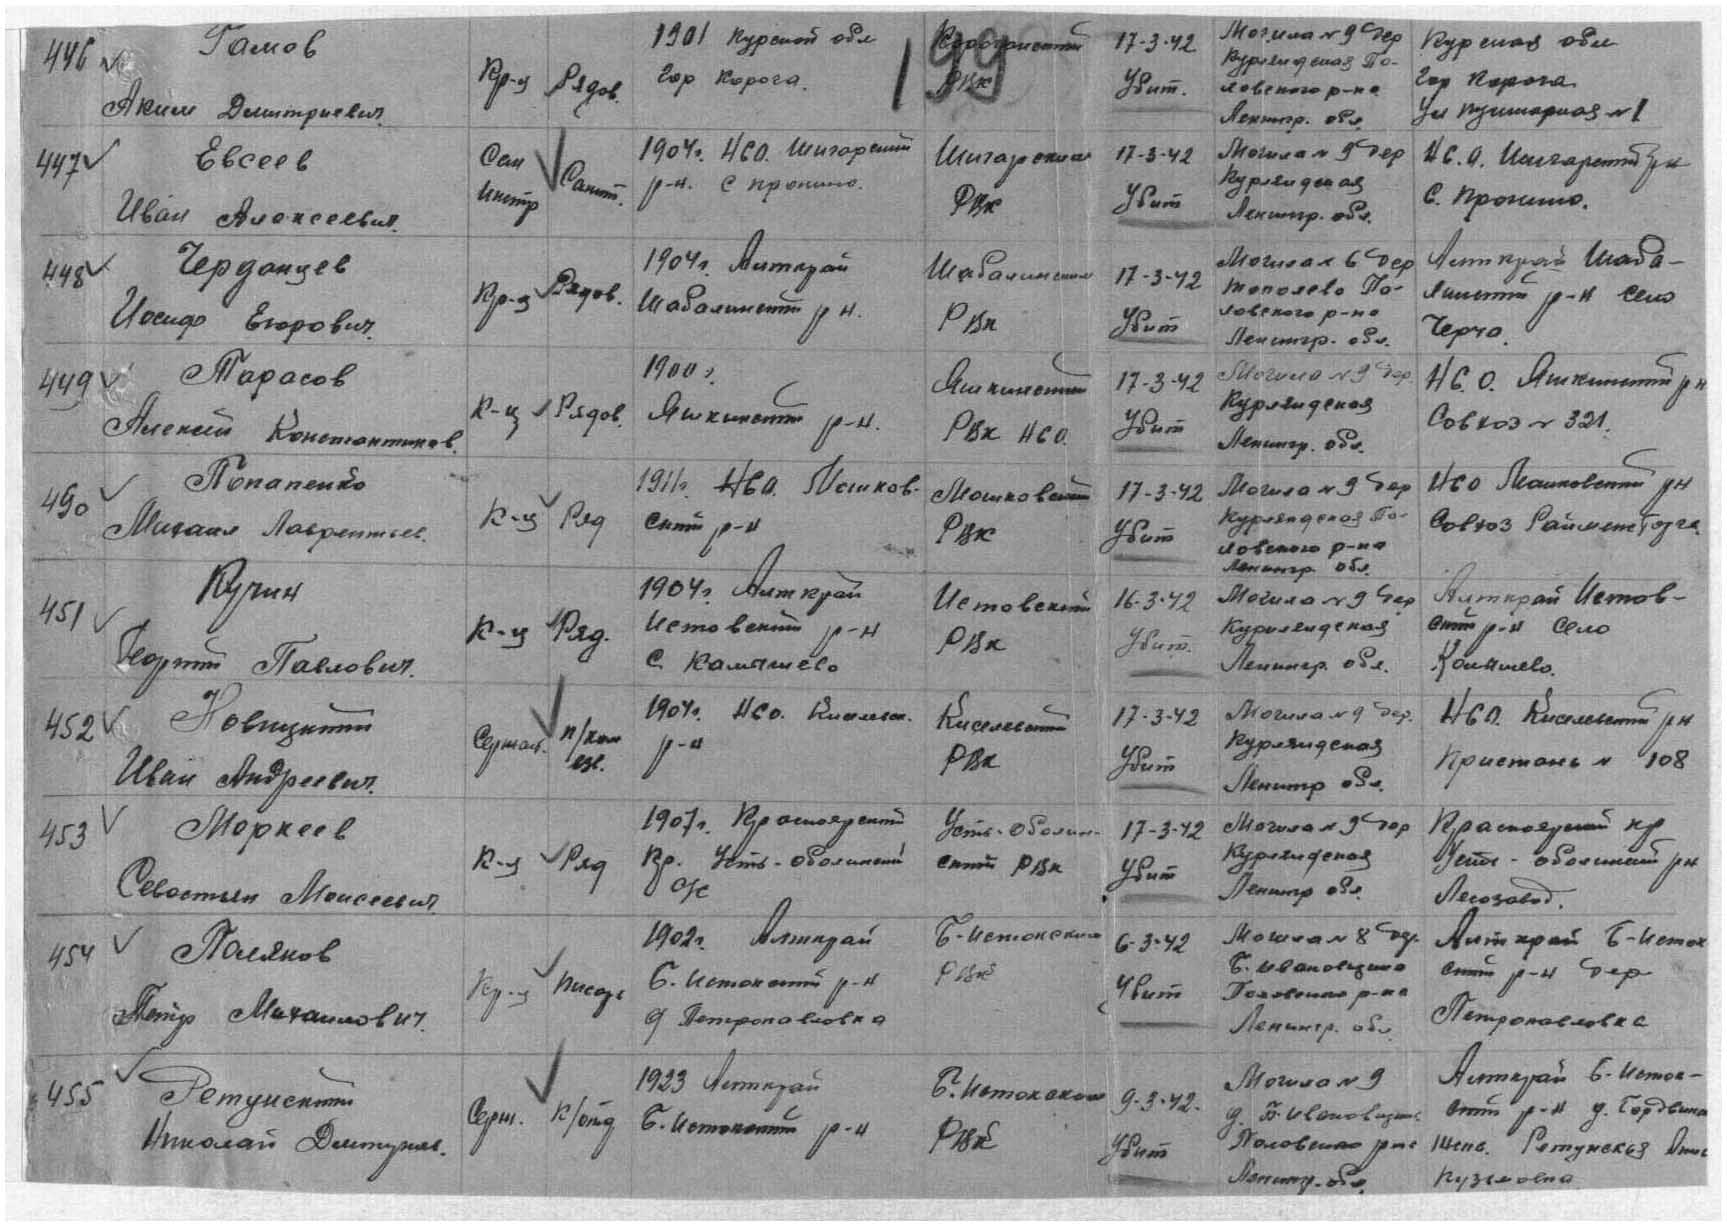 446 Гамов
Аким Дмитриевич
Кр-ц Рядов.
1901 Курской обл
Гор Короча.
199
РВК
17-3-42
Убит.
Могила № 9 дер
Курляндская По-
ловского р-на
Ленингр. обл.
Курская обл
Гор Короча
Ул Пушкарная № 1
447 Евсеев
Иван Алексеевич.
Сан
Инстр
Санит.
1904г. НСО.
р-н. с Пронино.
РВК
17-3-42
Убит
Могила № 9 дер
Курляндская
Ленингр. обл.
НСО.
С. Пронино.
448 Черданцев
Иосиф Егорович.
Кр-ц Рядов.
1904г. Алткрай
Шабалинский р-н.
Шабалинский
РВК
17-3-42
Убит
Могила № 6 дер
Тополево По-
ловского р-на
Ленингр. обл.
Алткрай Шаба-
линский р-н село
449 Тарасов
Алексей Константинов.
К-ц Рядов.
1900г.
Яшкинский р-н.
Яшкинский
РВК НСО.
17-3-42
Убит
Могила № 9 дер.
Курляндская
Ленингр. обл.
НСО. Яшкинский р-н
Совхоз № 321.
450 Потапенко
Михаил Лаврентьев.
К-ц Ряд
1911г. НСО. Мошков-
ский р-н
Мошковский
РВК
17-3-42
Убит
Могила № 9 дер
Курляндская По-
ловского р-на
Ленингр. обл.
НСО Мошковский р-н
Совхоз
451 Кучин
Георгий Павлович.
К-ц Ряд.
1904г. Алткрай
Истовский р-н
с. Камышево
Истовский
РВК
16-3-42
Убит.
Могила № 9 дер
Курляндская
Ленингр. обл.
Алткрай Истов-
ский р-н село
Камышево.
452 Новицкий
Иван Андреевич.
Сержант. п/ком
взв.
1904г. НСО. Киселевск.
р-н
Киселевский
РВК
17-3-42
Убит
Могила № 9 дер.
Курляндская
Ленингр обл.
НСО. Киселевский р-н
Пристань № 108
453 Моркеев
Севостьян Моисеевич.
К-ц Ряд
1907г. Красноярский
Кр. Усть-оболинский
Усть-оболин-
ский РВК
17-3-42
Убит
Могила № 9 дер
Курляндская
Ленингр обл.
Красноярский кр
Усть-оболинский р-н
Лесозавод.
454 Поляков
Пётр Михаилович.
Кр-ц Писарь
1902г. Алткрай
Б-Истокский р-н
д Петропавловка
Б-Истокский
РВК
6-3-42
Убит
Могила № 8 дер.
Б. Ивановщина
Половского р-на
Ленингр. обл
Алткрай Б-Исток
ский р-н дер
Петропавловка
455 Ретунский
Николай Дмитриев.
Серж. К/отд
1923 Алткрай
Б-Истокский р-н
Б-Истокский
РВК
9-3-42.
Убит
Могила № 9
д. Б-Ивановщина
Половского р-на
Ленингр. обл.
Алткрай Б-Исток-
ский р-н д.
Жена. Ретунская Анна
Кузьмовна